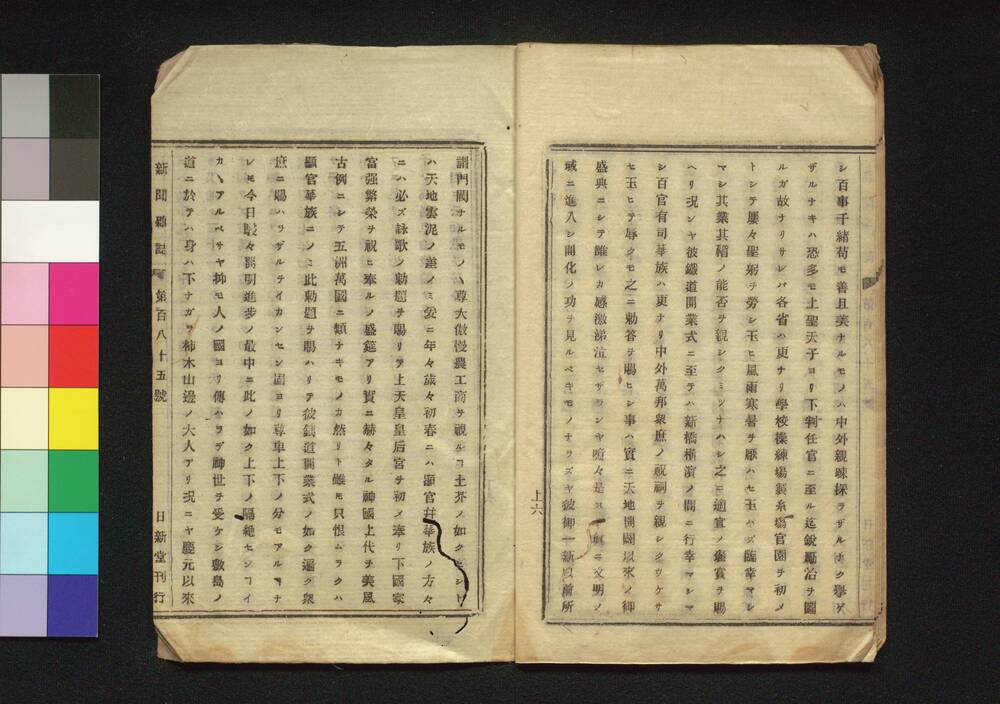 シ百事千緒苟モ善且美ナルモノハ中外親疎探ラザルナク擧ゲ
ザルナキハ恐多モ上聖天子ヨリ下判任官ニ至ル迄鋭勵治ヲ圖
ルガ故ナリサレバ各省ハ更ナリ學校操練塲製糸塲官園ヲ初メ
トシテ屢々聖躬ヲ勞シ玉ヒ風雨寒暑ヲ厭ハセ玉ハズ臨幸マシ
マシ其業其藝ノ能否ヲ親シクミソナハシ之ニ適宜ノ褒賞ヲ賜
ヘリ況ンヤ彼鐵道開業式ニ至テハ新橋横濱ノ間ニ行幸マシマ
シ百官有司華族ハ更ナリ中外萬邦衆庶ノ祝詞ヲ親シクウケサ
セ玉ヒテ辱クモ之ニ勅答ヲ賜ヒシ事ハ實ニ天地開闢以來ノ御
盛典ニシテ誰レカ感激涕泣セザランヤ嗚々是
文明ノ
域ニ進入シ開化ノ功ヲ見ルベキモノナラズヤ彼御一新以前所
上六
謂門閥ナルモノハ尊大傲慢農工商ヲ視ルヿ土芥ノ如クセシト
ハ天地雲泥ノ差ノミ爰ニ年々歳々初春ニハ顯官并華族ノ方々
ニハ必ズ詠歌ノ勅題ヲ賜リテ上天皇皇后宮ヲ初メ奉リ下國家
富强繁榮ヲ祝ヒ奉ルノ盛筵アリ實ニ赫々タル神國上代ヲ美風
古例ニシテ五洲萬國ニ類ナキモノカ然リト雖モ只恨ムラクハ
顯官華族ニノミ此勅題ヲ賜ハリテ彼鐵道開業式ノ如ク遍ク衆
庶ニ賜ハラザルヲイカンセン固ヨリ尊卑上下ノ分モアルヿナ
レモ今日駸々開明進步ノ最中ニ此ノ如ク上下ノ隔絶センコイ
カヽアルベサヤ抑モ人ノ國ヨリ傳ハラデ神世ヲ受ケシ敷島ノ
道ニ於テハ身ハ下ナガラ柿本山邊ノ大人アリ況ニヤ慶元以來
新聞雜誌 第百八十五號
日新堂刊行